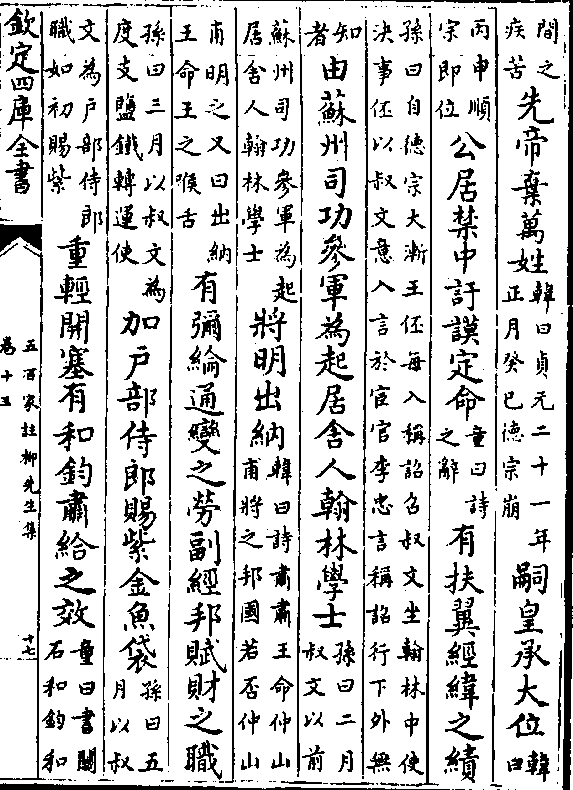 間之疾苦先帝棄萬姓韓曰貞元二十一年正月癸巳德宗崩嗣皇承大位韓曰
丙申順宗即位公居禁中訏謨定命童曰詩之辭有扶翼經緯之績
孫曰自德宗大漸王伾每入稱詔召叔文坐翰林中使決事伾以叔文意入言於宦官李忠言稱詔行下外無
知者由蘇州司功參軍為起居舍人翰林學士孫曰二月叔文以前
蘇州司功參軍為起居舍人翰林學士將明出納韓曰詩肅肅王命仲山甫將之邦國若否仲山
甫明之又曰出納王命王之喉舌有彌綸通變之勞副經邦賦財之職
孫曰三月以叔文為度支鹽鐵轉運使加戶部侍郎賜紫金魚袋孫曰五月以叔
文為戶部侍郎職如初賜紫重輕開塞有和鈞肅給之效童曰書關石和鈞和
欽定四庫全書
五百家註柳先生集
卷十五
十七